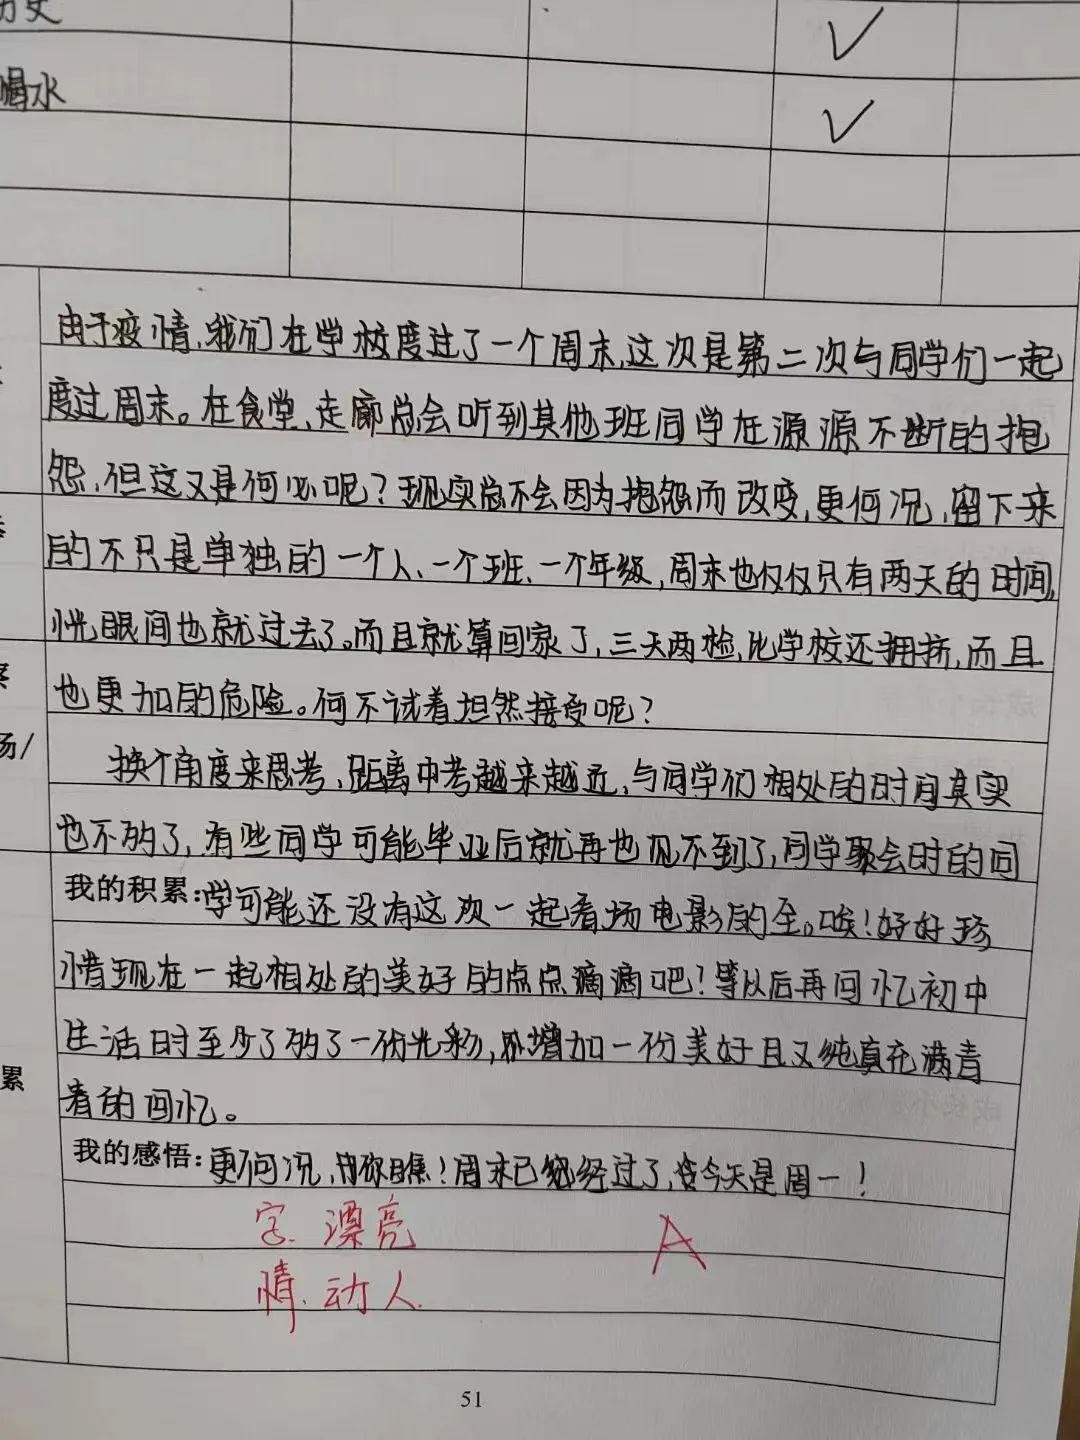 历史
喝水
由于疫情,我们在学校度过了一个周末,这次是第二次与同学们一起
度过周末。在食堂、走廊总会听到其他班同学在源源不断的抱
怨,但这又是何必呢?现实总不会因为抱怨而改变,更何况,留下来
的不只是单独的一个人、一个班、一个年级,周末也仅仅只有两天的时间,
恍眼间也就过去了。而且就算回家了,三天两检,比学校还拥挤,而且
也更加的危险。何不试着坦然接受呢?
换个角度来思考,距离中考越来越近,与同学们相处的时间其实
也不多了,有些同学可能毕业后就再也见不到了,同学聚会时的同
我的积累:学可能还没有这次一起看场电影的全。唉!好好珍
惜现在一起相处的美好的点点滴滴吧!等以后再回忆初中
生活时至少了多了一份光彩,增加一份美好且又纯真充满青
春的回忆。
我的感悟:更何况,你瞧!周末已经过了,今天是周一!
字.漂亮
情.动人.
A
场/
累
51